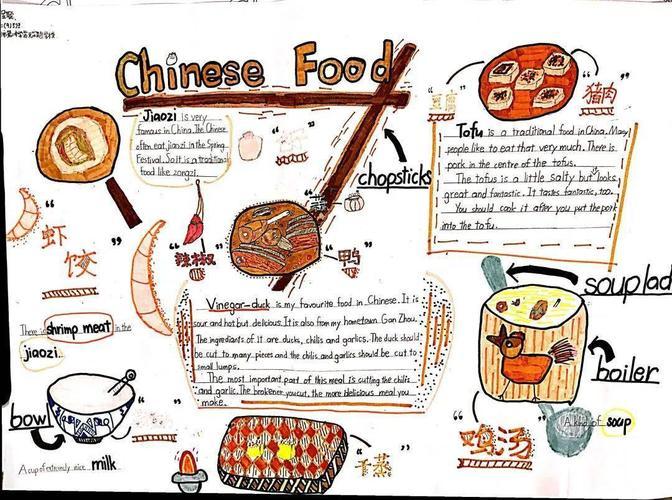 Chinese Food
Jiaozi is very
famous in China. The Chinese
often eat jiaozi in the Spring
Festival. So it is a traditional
food like zongzi.
chopsticks
猪肉
Tofu is a traditional food in China. Many
people like to eat that very much. There is
pork in the centre of the tofus.
The tofus is a little salty but looks
great and fantastic. It tastes fantastic, too.
You should cook it after you put the pork
into the tofu.
"虾
饺"
"辣椒"
"鸭"
There is shrimp meat in the
jiaozi.
Vinegar-duck is my favourite food in Chinese. It is
sour and hot but delicious. It is also from my hometown Gan Zhou.
The ingredients of it are ducks, chilis and garlics. The duck should
be cut to many pieces and the chilis and garlics should be cut to
small lumps.
The most important part of this meal is cutting the chilis
and garlic. The brokener you cut, the more blelicious meal you
make.
soup lad
boiler
bowl
A cup of extremly nice milk
"鸡汤"
A kind of soup